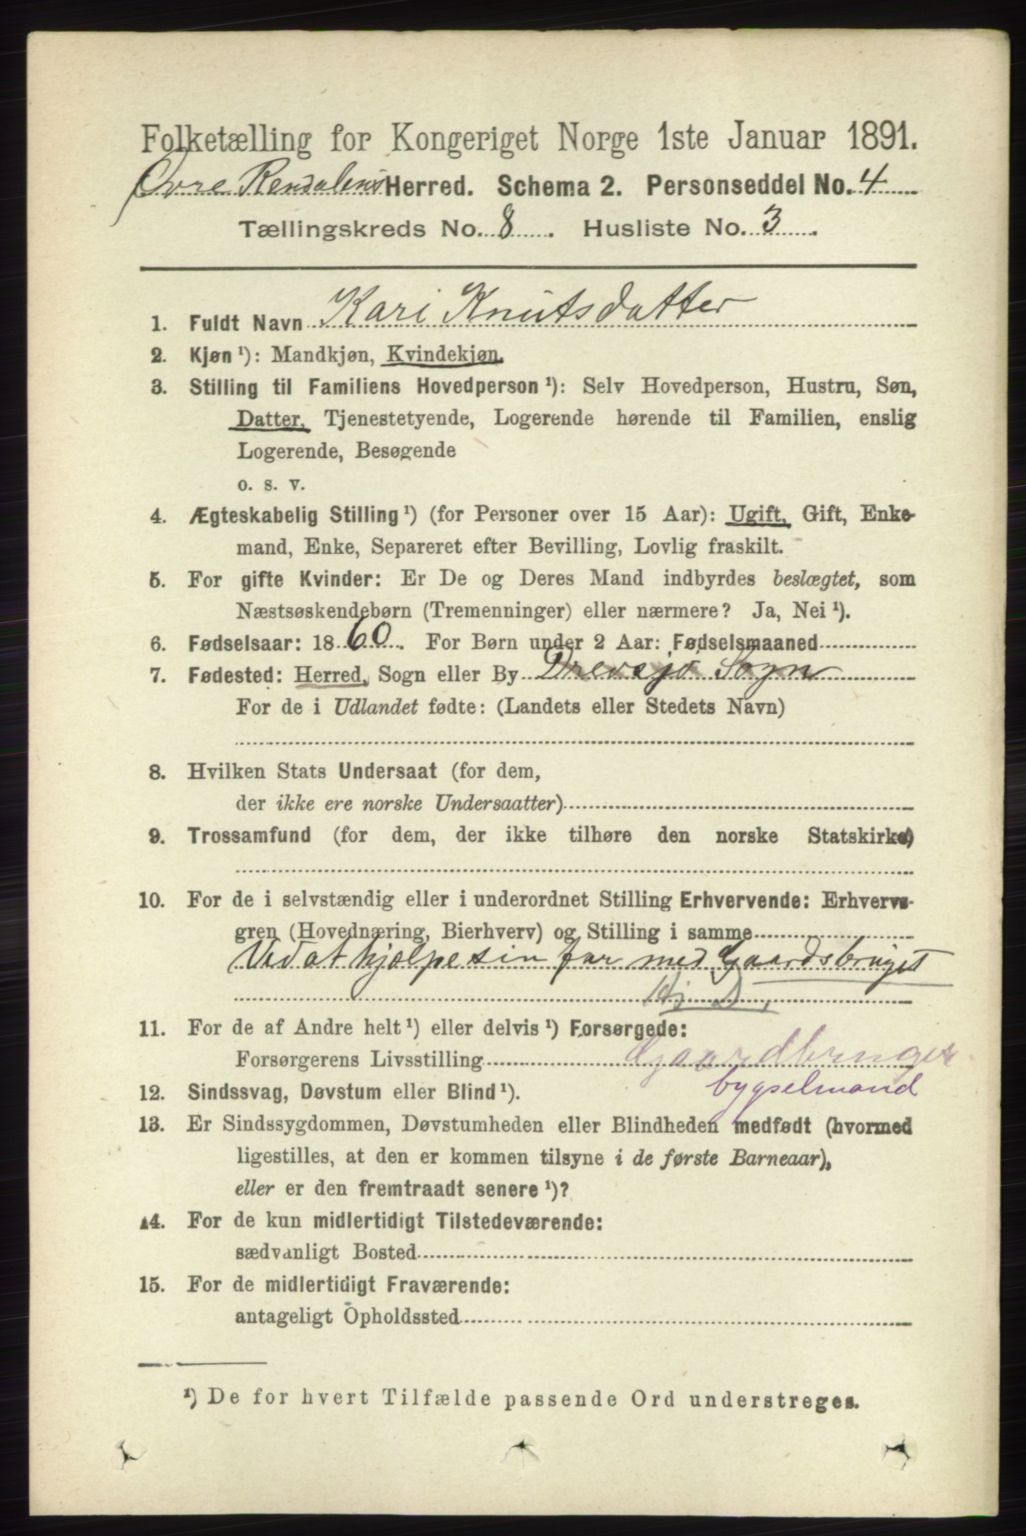 Folketælling for Kongeriget Norge 1ste Januar 1891.
Øvre Rendalens Herred. Schema 2. Personseddel No. 4
Tællingskreds No. 8. Husliste No. 3.
1. Fuldt Navn Kari Knutsdatter
2. Kjøn ¹): Mandkjøn, Kvindekjøn.
3. Stilling til Familiens Hovedperson ¹): Selv Hovedperson, Hustru, Søn,
Datter, Tjenestetyende, Logerende hørende til Familien, enslig
Logerende, Besøgende
o. s. v.
4. Ægteskabelig Stilling ¹) (for Personer over 15 Aar): Ugift, Gift, Enke-
mand, Enke, Separeret efter Bevilling, Lovlig fraskilt.
5. For gifte Kvinder: Er De og Deres Mand indbyrdes beslægtet, som
Næstsøskendebørn (Tremenninger) eller nærmere? Ja, Nei ¹).
6. Fødselsaar: 1860. For Børn under 2 Aar: Fødselsmaaned
7. Fødested: Herred, Sogn eller By Drevsjø Sogn
For de i Udlandet fødte: (Landets eller Stedets Navn)
8. Hvilken Stats Undersaat (for dem,
der ikke ere norske Undersaatter)
9. Trossamfund (for dem, der ikke tilhøre den norske Statskirke)
10. For de i selvstændig eller i underordnet Stilling Erhvervende: Erhvervs-
gren (Hovednæring, Bierhverv) og Stilling i samme
Ved at hjælpe sin far med Gaardsbruget
Hj D,
11. For de af Andre helt ¹) eller delvis ¹) Forsørgede:
Forsørgerens Livsstilling Gaardbruger
bygselmand
12. Sindssvag, Døvstum eller Blind ¹).
13. Er Sindssygdommen, Døvstumheden eller Blindheden medfødt (hvormed
ligestilles, at den er kommen tilsyne i de første Barneaar),
eller er den fremtraadt senere ¹)?
14. For de kun midlertidigt Tilstedeværende:
sædvanligt Bosted
15. For de midlertidigt Fraværende:
antageligt Opholdssted
¹) De for hvert Tilfælde passende Ord understreges.